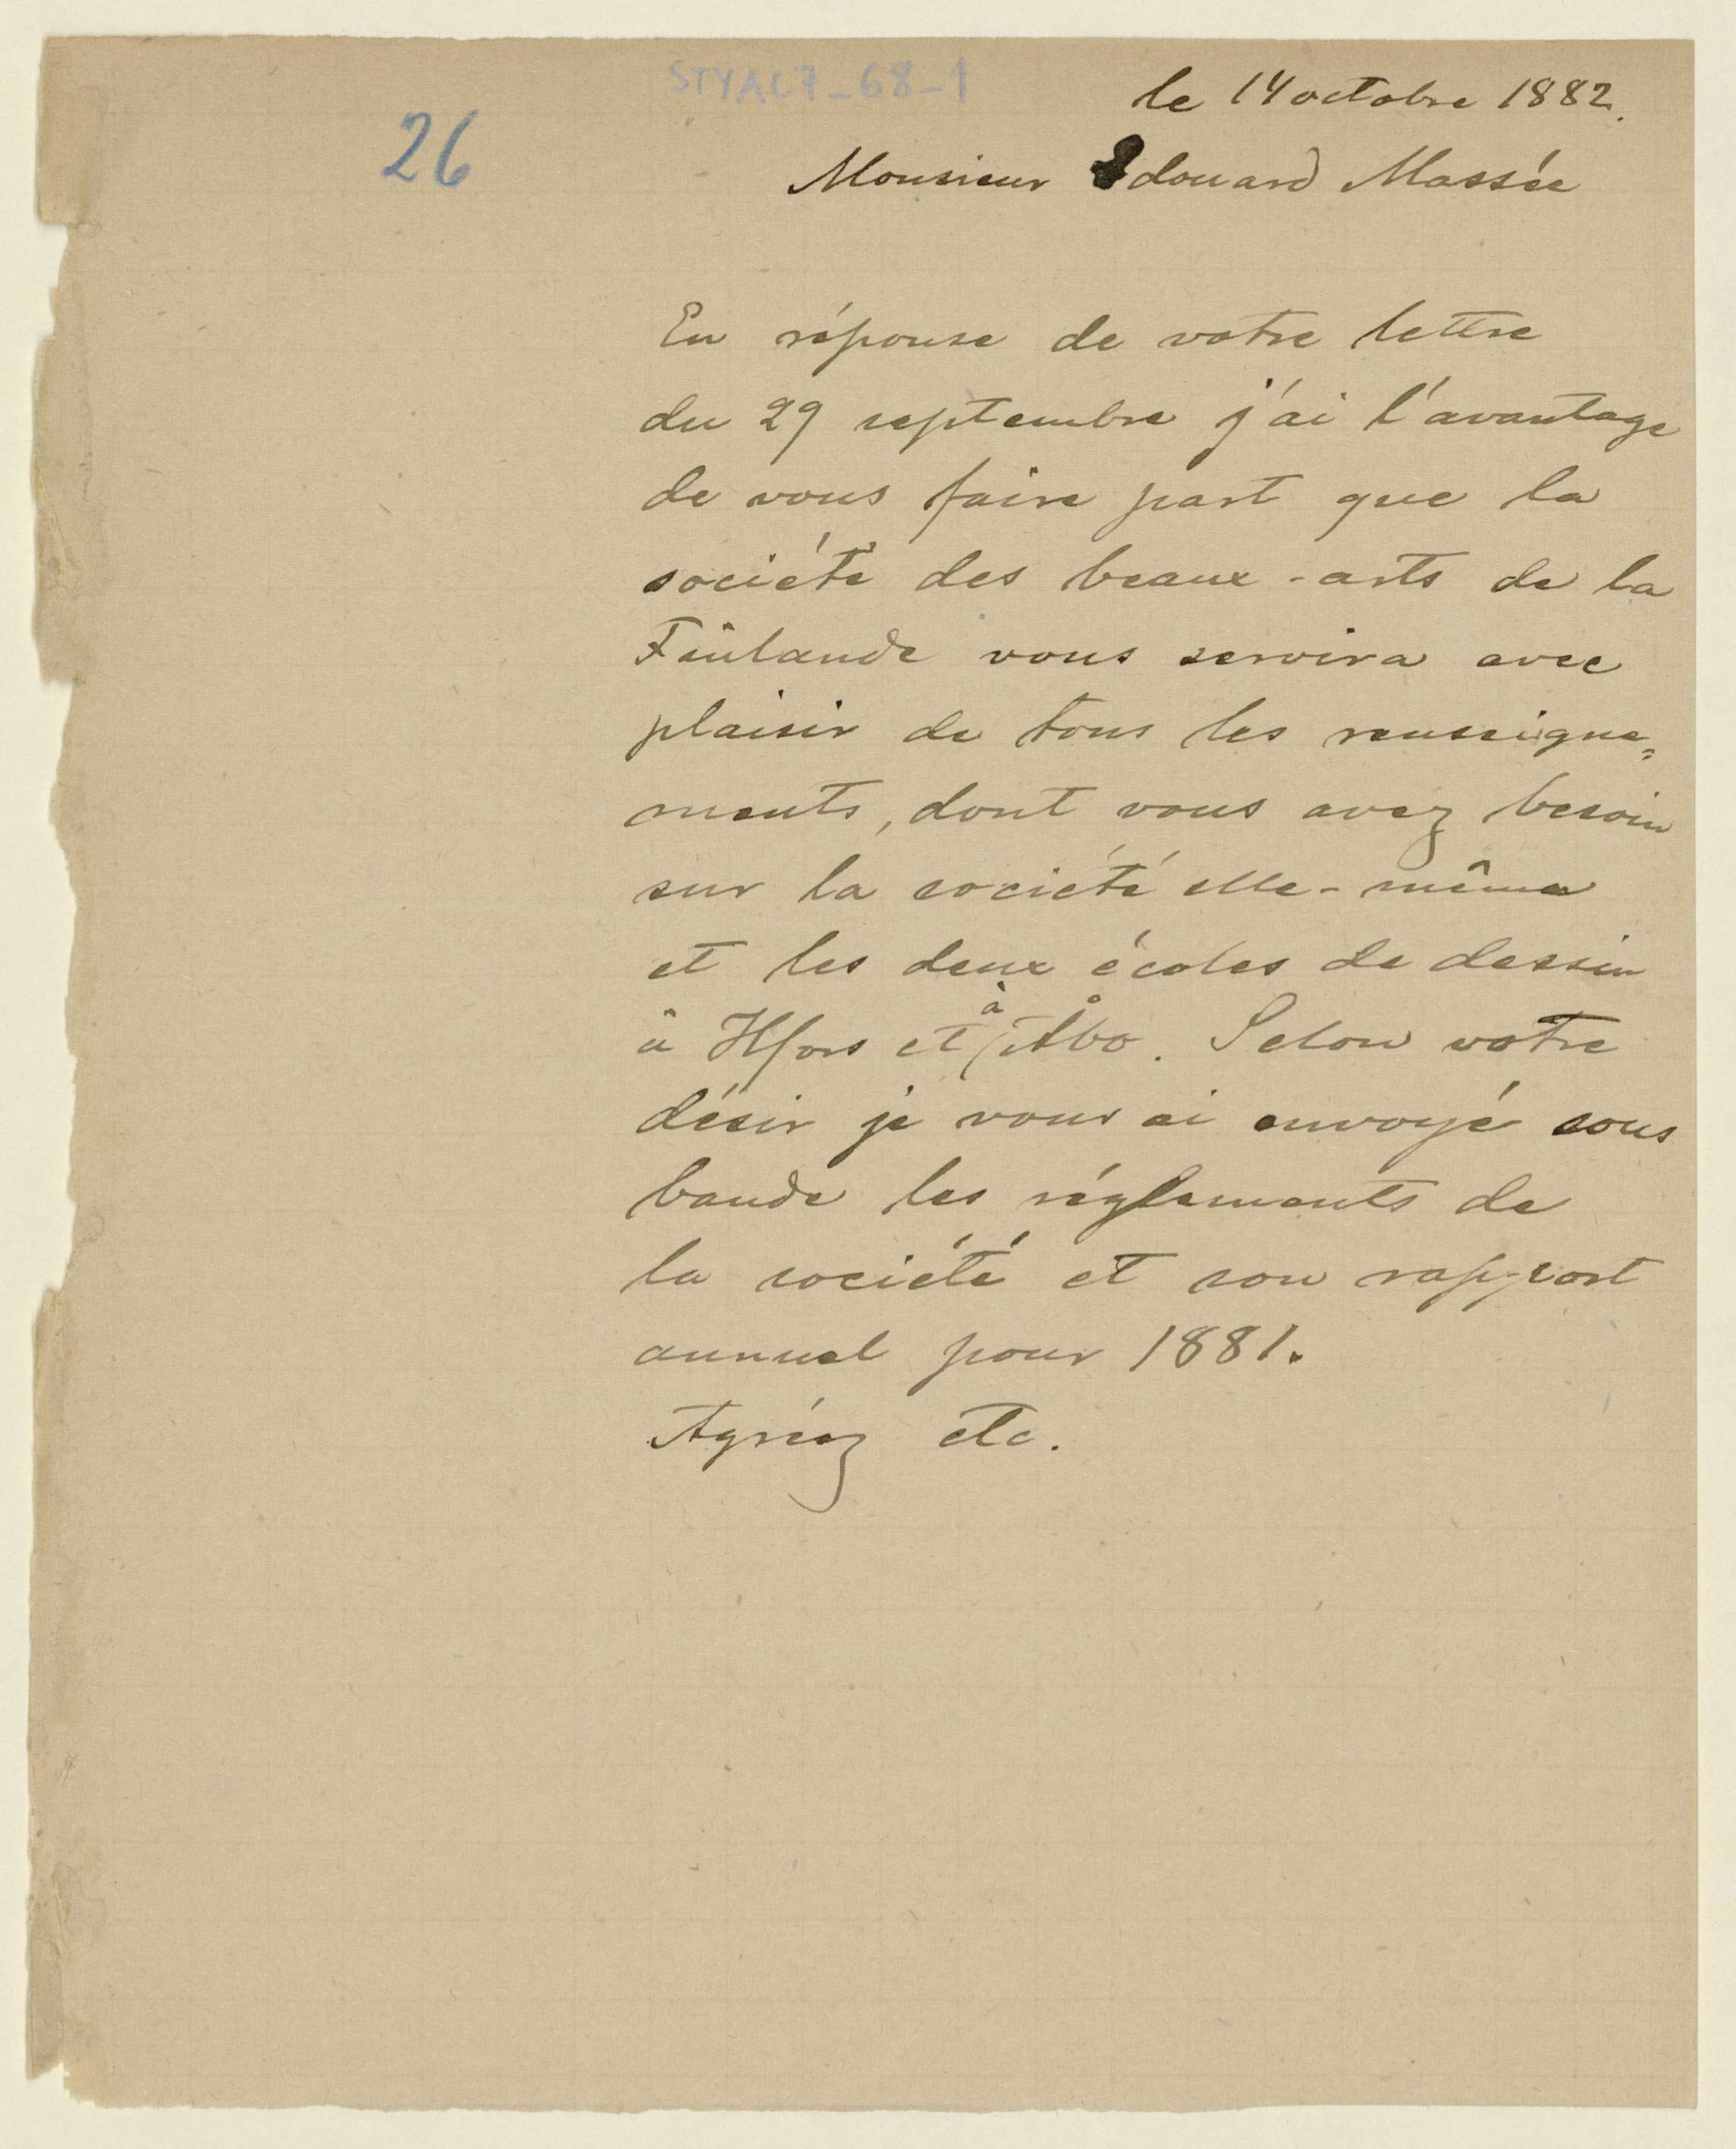 STYAC7-68-1
26
le 14 octobre 1882.
Monsieur Edouard Massée
En réponse de votre lettre
du 29 septembre j'ai l'avantage
de vous faire part que la
société des beaux-arts de la
Finlande vous servira avec
plaisir de tous les renseigne=
ments, dont vous avez besoin
sur la société elle-même
et les deux écoles de dessin
à Hfors et à Åbo. Selon votre
désir je vous ai envoyé sous
bande les réglements de
la société et son rapport
annuel pour 1881.
Agréez etc.